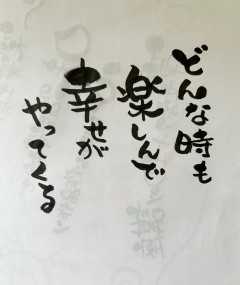 どんな時も
楽しんで
幸せが
やってくる